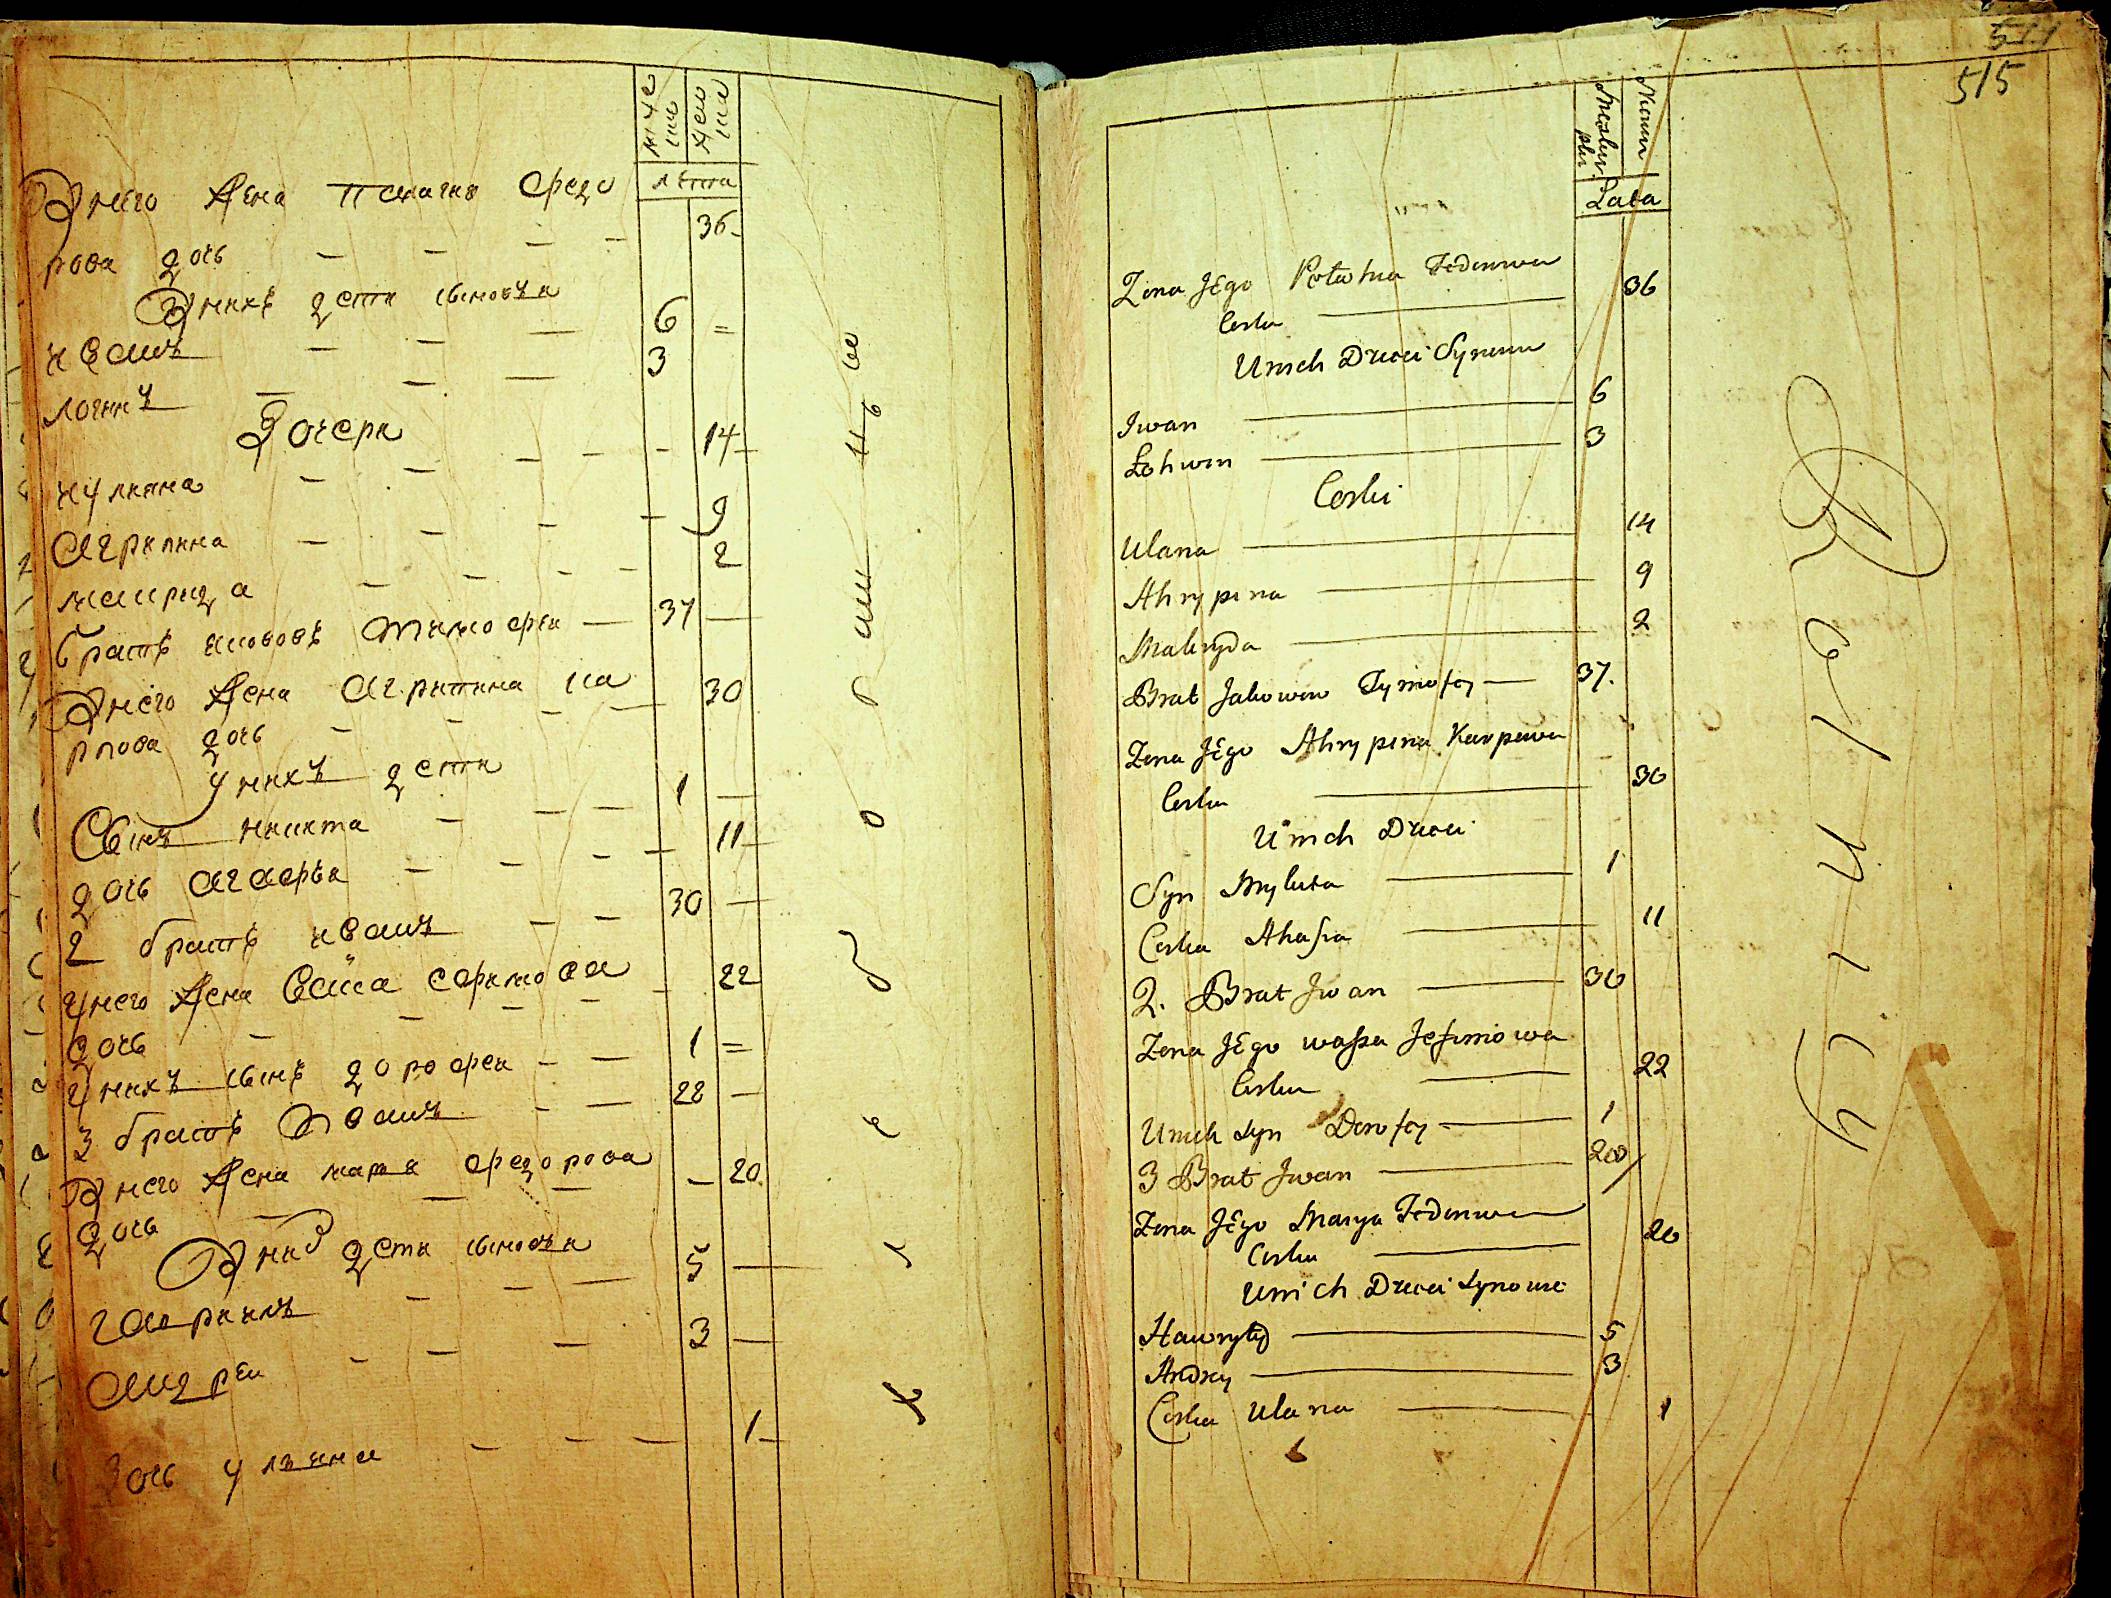 муже
ска
женс
ка
лѣта
Унего жена Пелагия Федо
рова дочь — — — — 36
Унихъ дети сыновья
Иванъ — — — 6 =
Логинъ — — — 3
Дочери
Иулияна — — — — — 14
Агрипина — — — — 9
Маирида — — — — 2
братъ Тимофеи — 37 —
Унего жена Агрипина Ка
рпова дочь — — — — 30
Унихъ дети
Сынъ Никита — — — 1 —
дочь Агафья — — — — 11
2 братъ Иванъ — — 30 —
Унего жена Васса Ефимова
дочь — — — — — 22
Унихъ сынъ Дорофеи — — 1 =
3 братъ Иванъ — — 28 —
Унего жена Маря Федорова
дочь — — — 20
Уних дети сыновья
Гаврилъ — — — 5 —
Андреи — — — 3 —
дочь Улияна — — — 1
Хлебо
511
515
Męskiey
płci
Lata
Zona Jego Pełahia Fedorowa
Corka — 36
Unich Dzieci Synowie
Iwan — 6
Łohwin — 3
Corki
Ulana — 14
Ahrypina — 9
Makryda — 2
Brat Jakowow Tymofey — 37.
Zona Jego Ahrypina Karpowa
Corka — 30
Unich Dzieci
Syn Mykita — 1
Corka Ahafia — 11
2. Brat Iwan — 30
Zona Jego Wassa Jefimowa
Corka — 22
Unich Syn Dorofey — 1
3 Brat Iwan — 28
Zona Jego Marya Fedorowa
Corka — 20
Unich Dzieci Synowie
Hawryło — 5
Andrey — 3
Corka Ulana — 1
Rolnicy